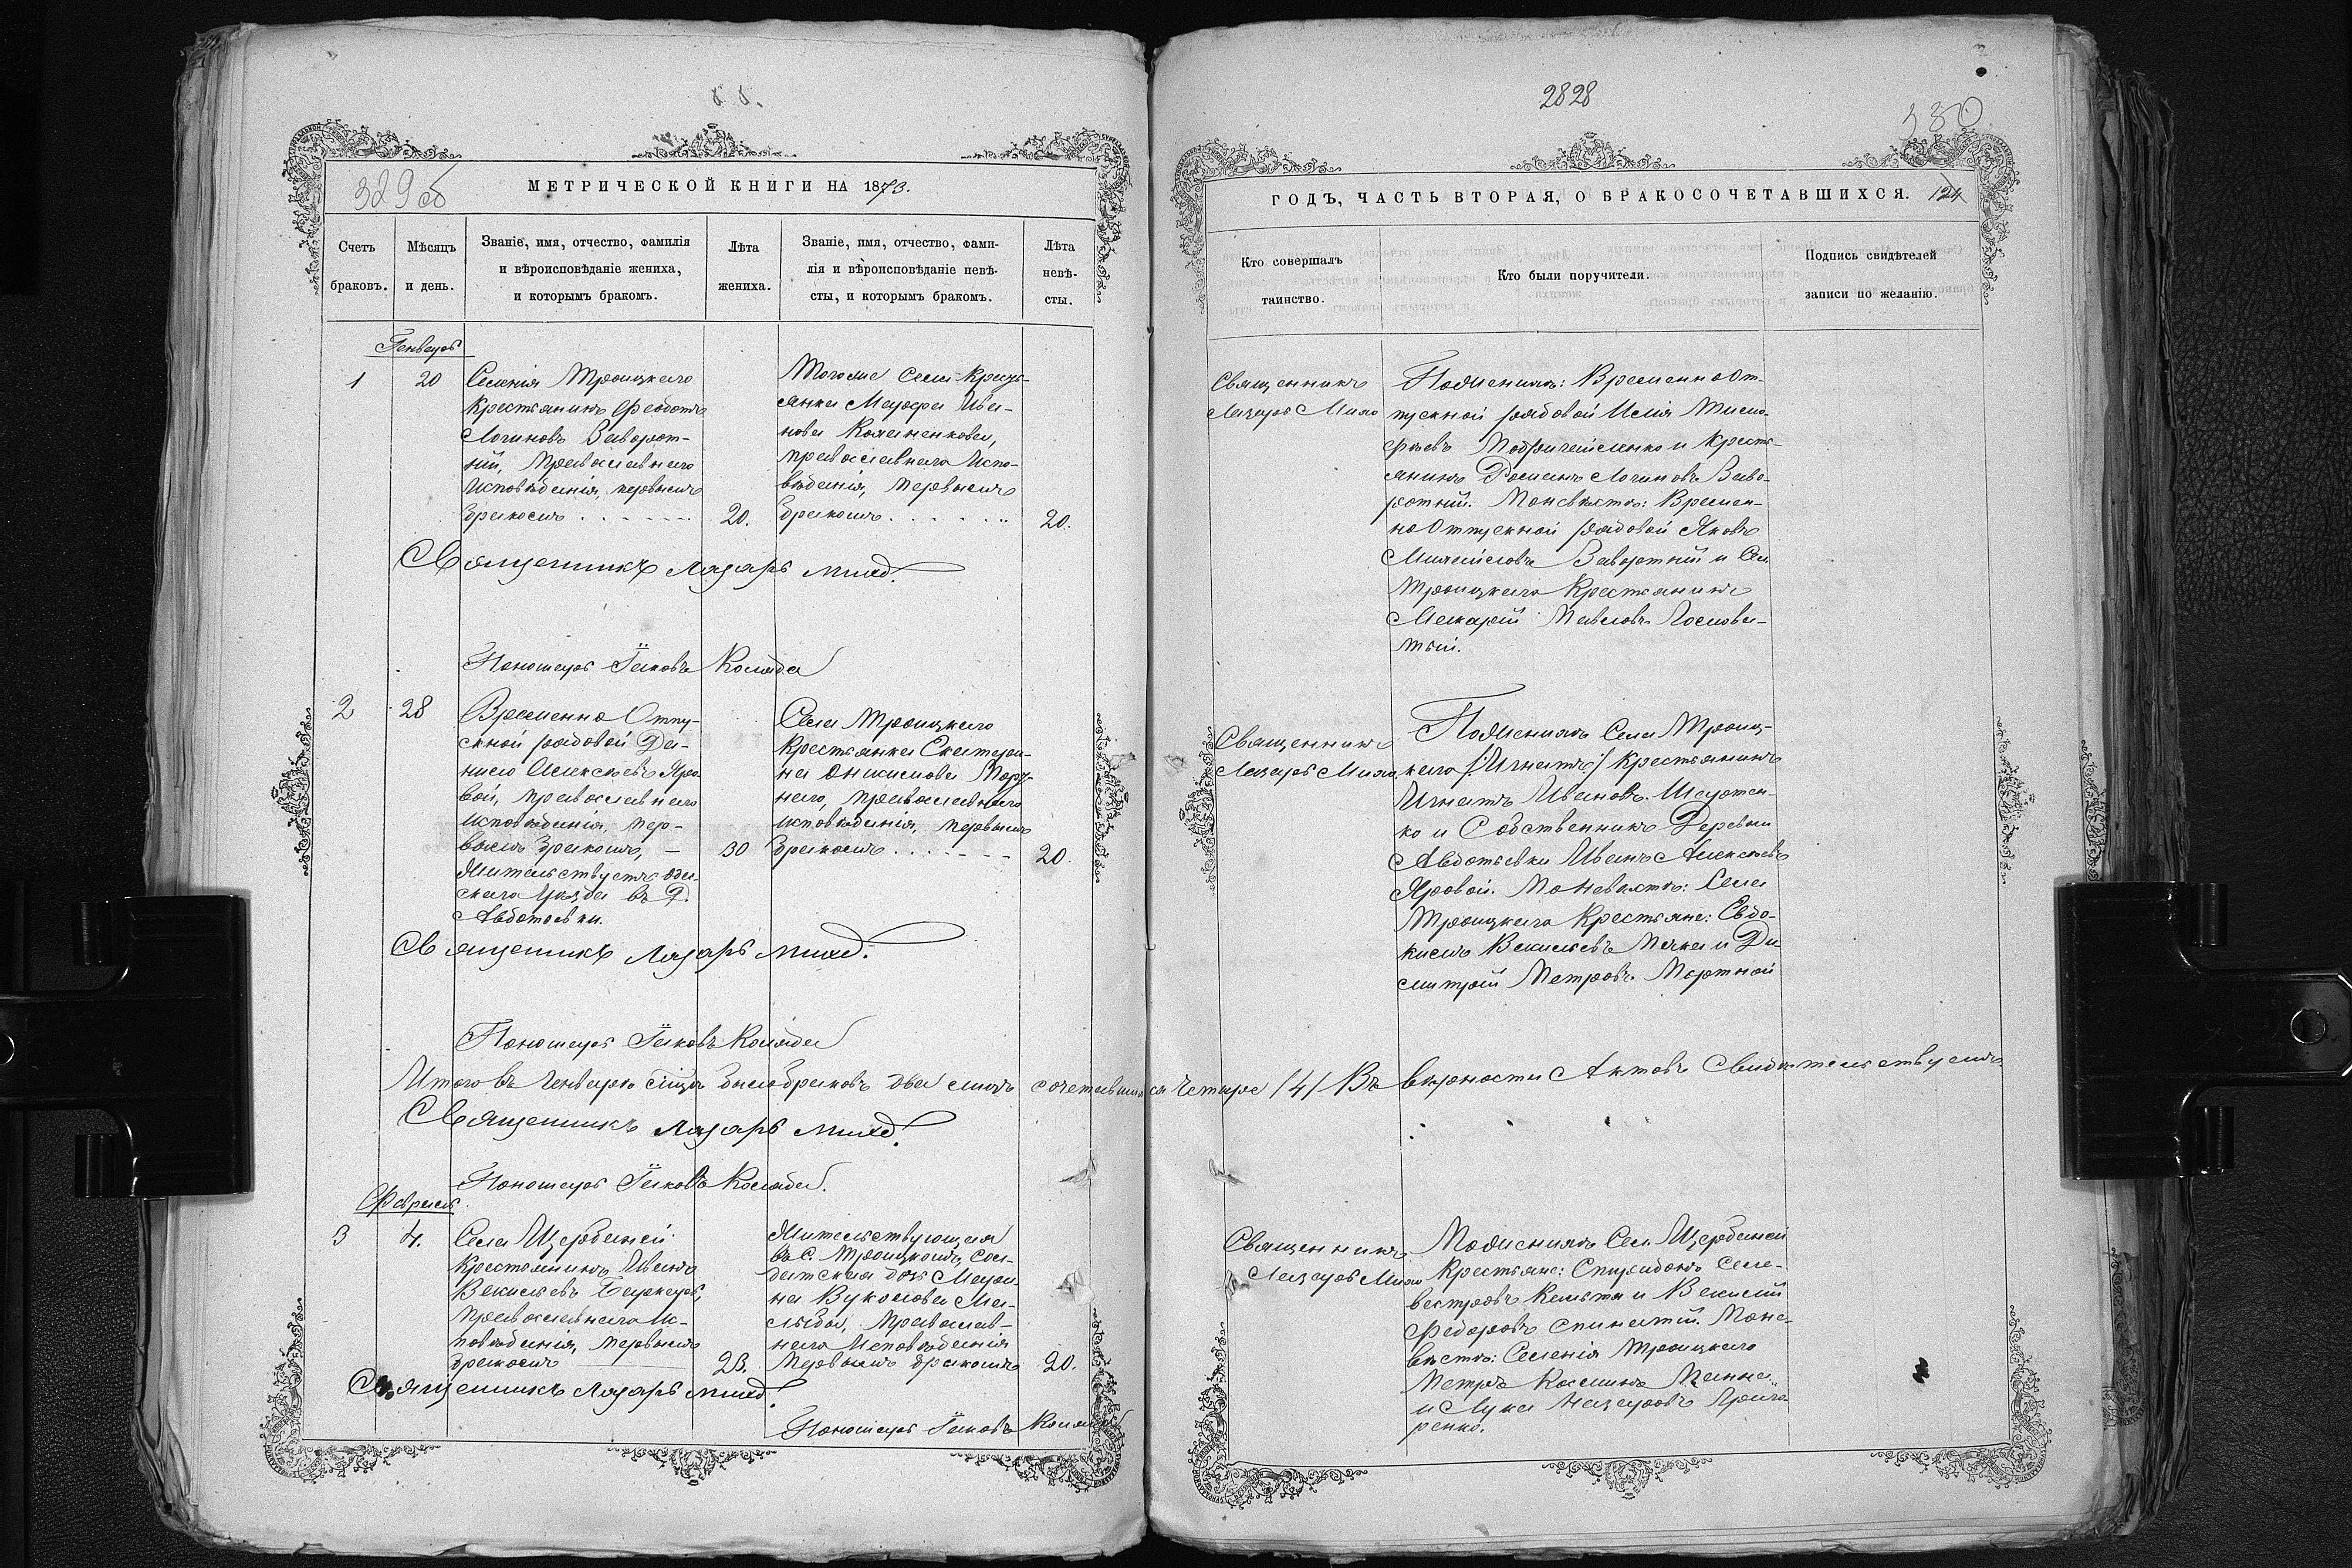 329 об
МЕТРИЧЕСКОЙ КНИГИ НА 1873.
Счетъ браковъ.
Мѣсяцъ и день.
Званіе, имя, отчество, фамилія
и вѣроисповѣданіе жениха,
и которымъ бракомъ.
Лѣта
жениха.
Званіе, имя, отчество, фами-
лія и вѣроисповѣданіе невѣ-
сты, и которымъ бракомъ.
Лѣта
невѣ-
сты.
Генварь
1
20
Селенія Троицкаго
Крестьянинъ Феодотъ
Логиновъ Заворот-
ній, Православнаго
Исповѣданія, первымъ
бракомъ
20.
Тогоже Села Кресть-
янка Марфа Ива-
нова
Православнаго Испо-
вѣданія, Первымъ
бракомъ
20.
Священникъ Лазарь Михо.
Пономарь Іаковъ Коляда
2
28
Временно Отпу-
скной рядовой Да-
нило Алексѣевъ Яро-
вой, Православнаго
Исповѣданія, пер-
вымъ бракомъ,
30
Жительствуетъ Оде-
скаго Уѣзда въ Д.
Авдотьевки.
Села Троицкаго
Крестьянка Екатери-
на Онисимова
Православнаго
Исповѣданія, Первымъ
бракомъ
20.
Священникъ Лазарь Михо.
Пономарь Іаковъ Коляда
Итого въ Генварѣ было браковъ два
Священникъ Лазарь Михо.
Пономарь Іаковъ Коляда.
Февраль
3
4.
Села Щербаней
Крестьянинъ Иванъ
Василіевъ
Православнаго Ис-
повѣданія, Первымъ
бракомъ
23.
Жительствующая
въ С. Троицкомъ, Сол-
датская дочь Мари-
на Вуколова
Православ-
наго Исповѣданія
Первымъ бракомъ
20.
Священникъ Лазарь Михо.
Пономарь Іаковъ Коляда
2828
330
ГОДЪ, ЧАСТЬ ВТОРАЯ, О БРАКОСОЧЕТАВШИХСЯ. 124
Кто совершалъ
таинство.
Кто были поручители.
Подпись свидѣтелей
записи по желанію.
Священникъ
Лазарь Михо
По Женихѣ: Временно От-
пускной рядовой Илія Тимо-
фѣевъ и Кресть-
янинъ Романъ Логиновъ Заво-
ротній. По невѣстѣ: Времен-
но Отпускной рядовой Яковъ
Михайловъ Заворотній и Села
Троицкаго Крестьянинъ
Макарій Павловъ Головa-
тый.
Священникъ
Лазарь Михо
По Женихѣ Села Троиц-
каго /:Игнатъ:/ Крестьянинъ
Игнатъ Ивановъ
и Собственникъ Деревни
Авдотьевки Иванъ Алексѣевъ
Яровой. По Невѣстѣ: Села
Троицкаго Крестьяне: Евдо-
кимъ Василіевъ и Ди-
митрій Петровъ
сочетавшихся Четыре /4/ Въ вѣрности Актовъ Свидѣтельствуемъ
Священникъ
Лазарь Михо
По Женихѣ Села Щербаней
Крестьяне: Спиридонъ Силь-
вестровъ и Василій
Федоровъ По не-
вѣстѣ: Селенія Троицкаго
Петръ
и Лука Назаровъ Грицa-
ренко.